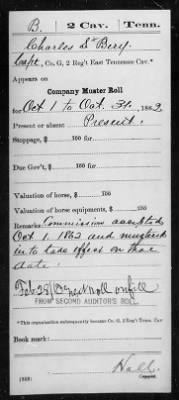 B. 2 Cav. Tenn.
Charles D. Bery.
Capt., Co. G, 2 Reg't East Tennessee Cav.*
Appears on
Company Muster Roll
for Oct 1 to Oct. 31, 1862.
Present or absent Present.
Stoppage, $ 100 for
Due Gov't, $ 100 for
Valuation of horse, $ 100
Valuation of horse equipments, $ 100
Remarks: Commission accepted
Oct 1. 1862 and mustered
in to take effect on that
date.
FROM SECOND AUDITOR'S ROLL.
*This organization subsequently became Co. G, 2 Reg't Tenn. Cav.
Book mark:
Hall
Copyist.